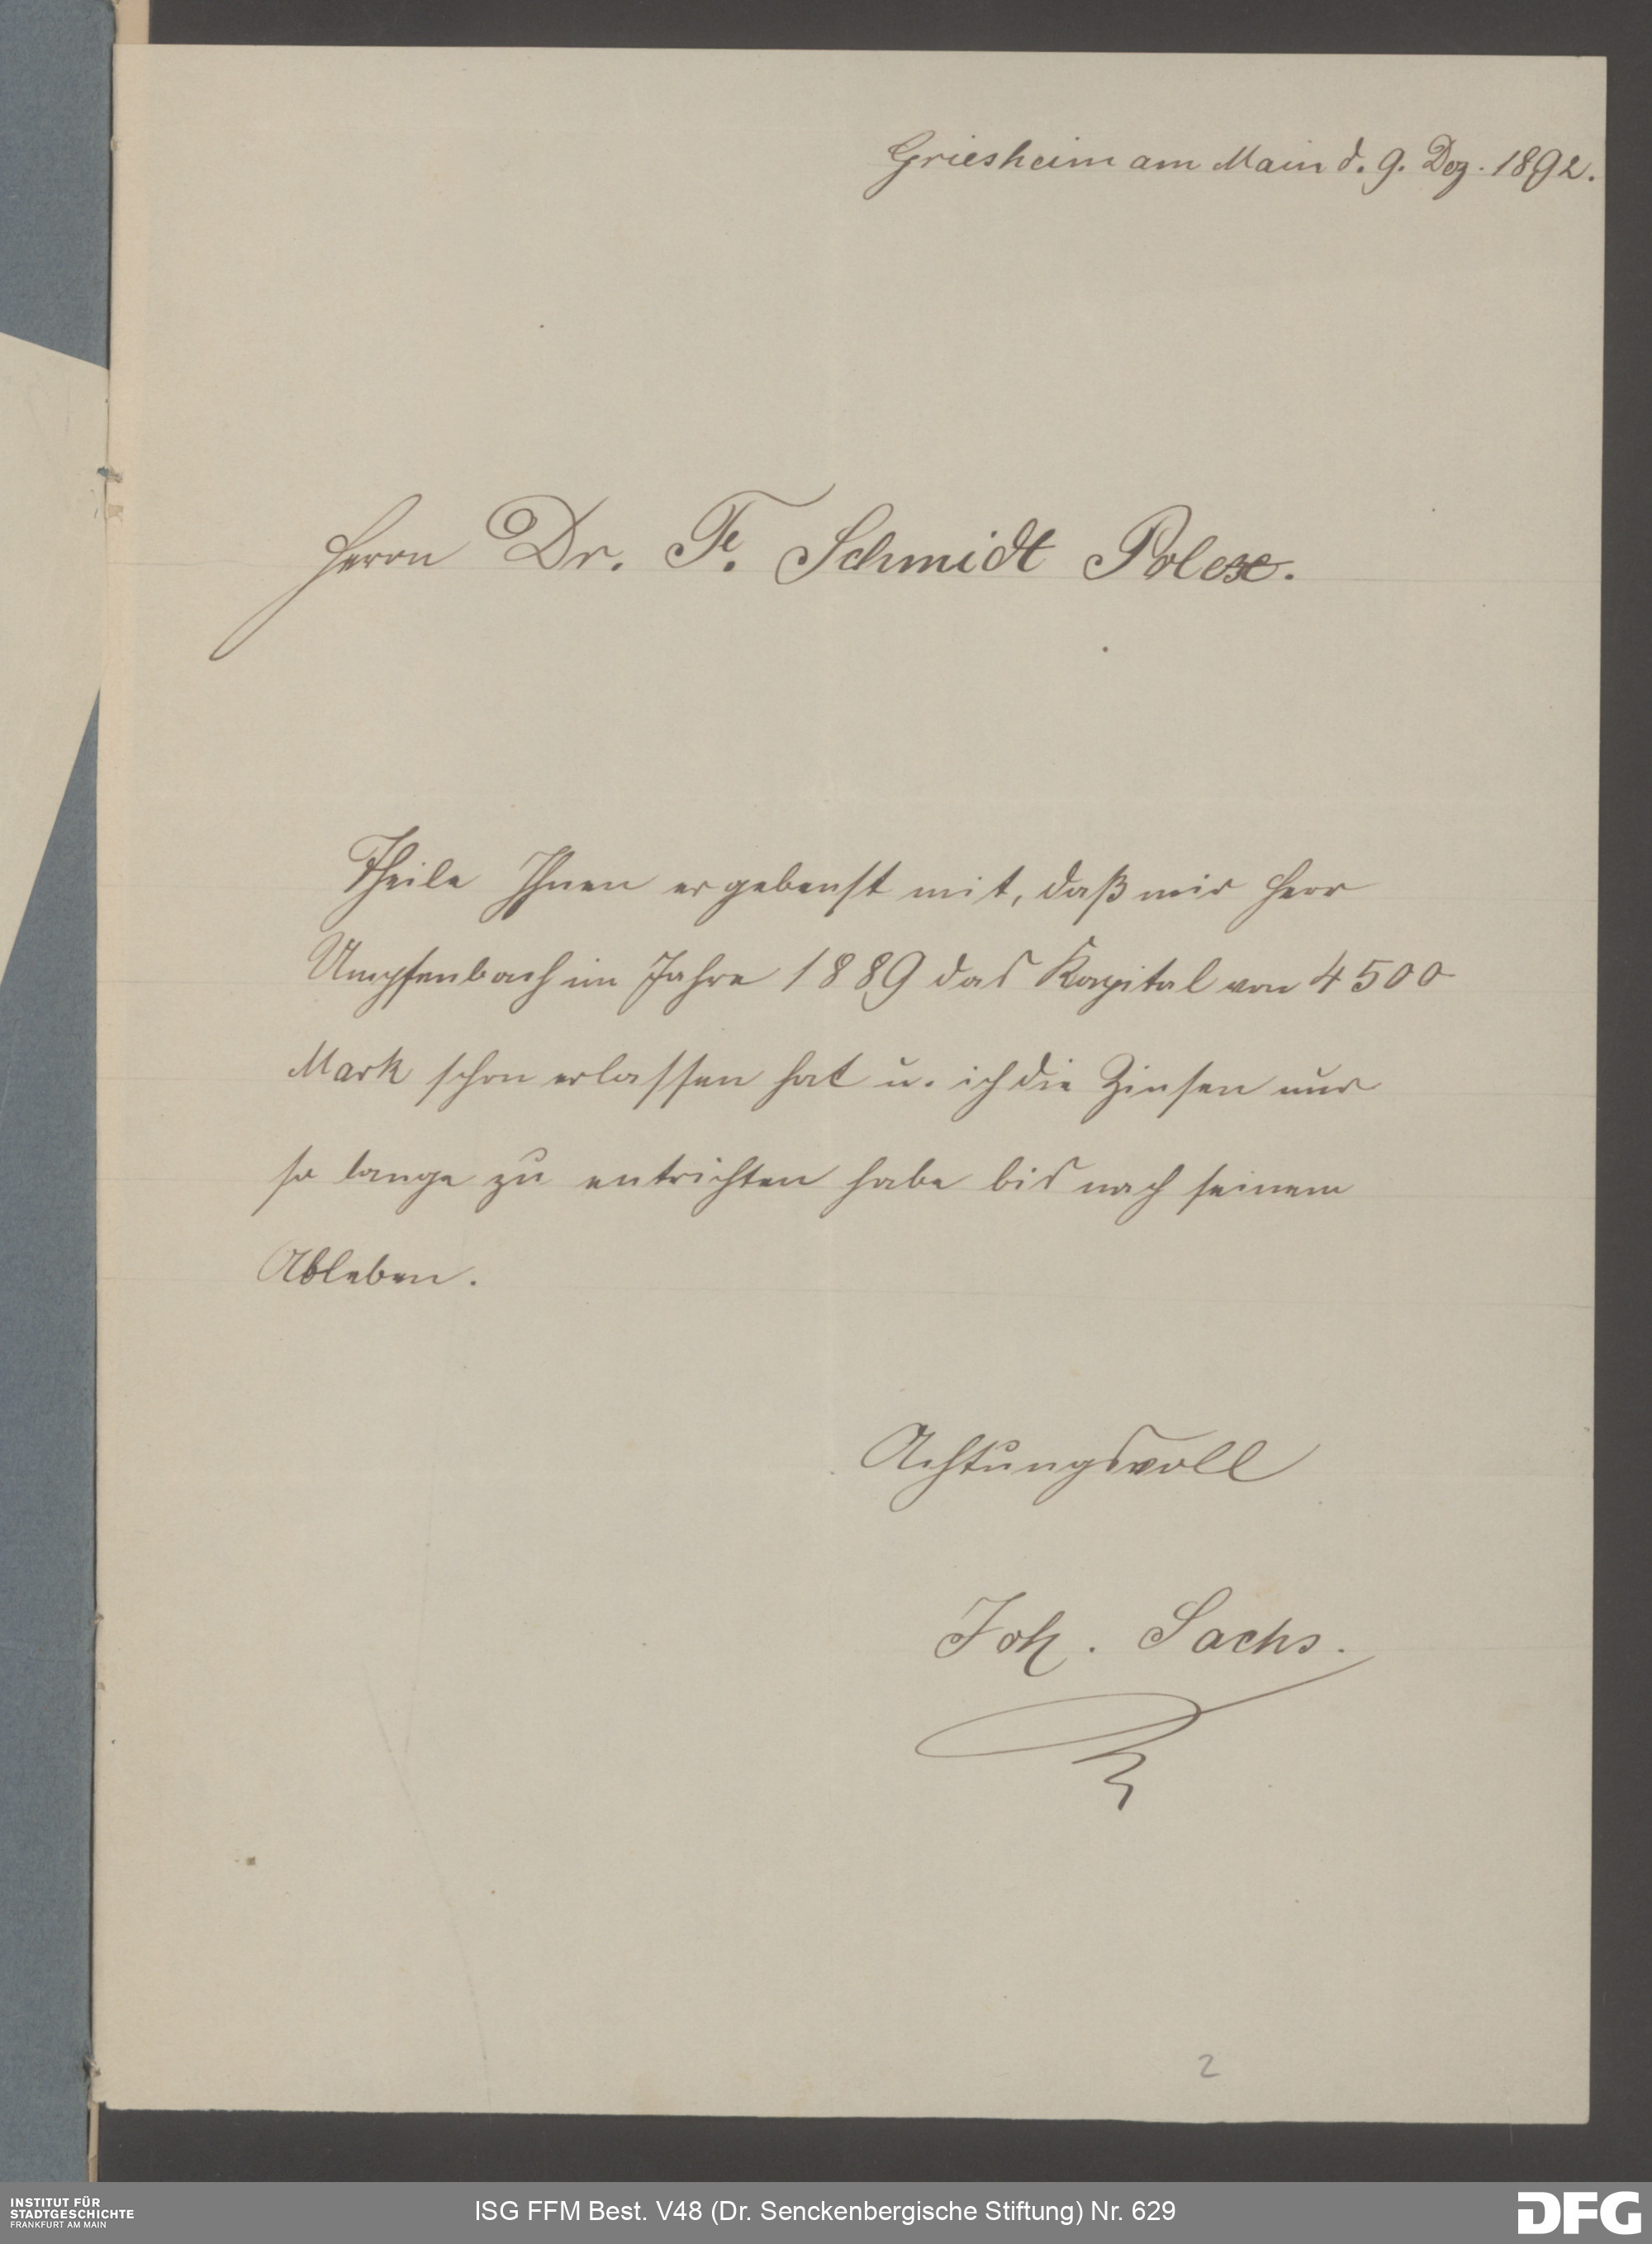 Griesheim am Main d. 9. Dez. 1892.
Herrn Dr. F. Schmidt Polex.
Theile Ihnen ergebenst mit, daß mir Herr
Umpfenbach im Jahre 1889 das Kapital von 4500
Mark schon erlassen hat u. ich die Zinsen nur
so lange zu entrichten habe bis nach seinem
Ableben.
Achtungsvoll
Joh. Sachs.
2
INSTITUT FÜR
STADTGESCHICHTE
FRANKFURT AM MAIN
ISG FFM Best. V48 (Dr. Senckenbergische Stiftung) Nr. 629
DFG